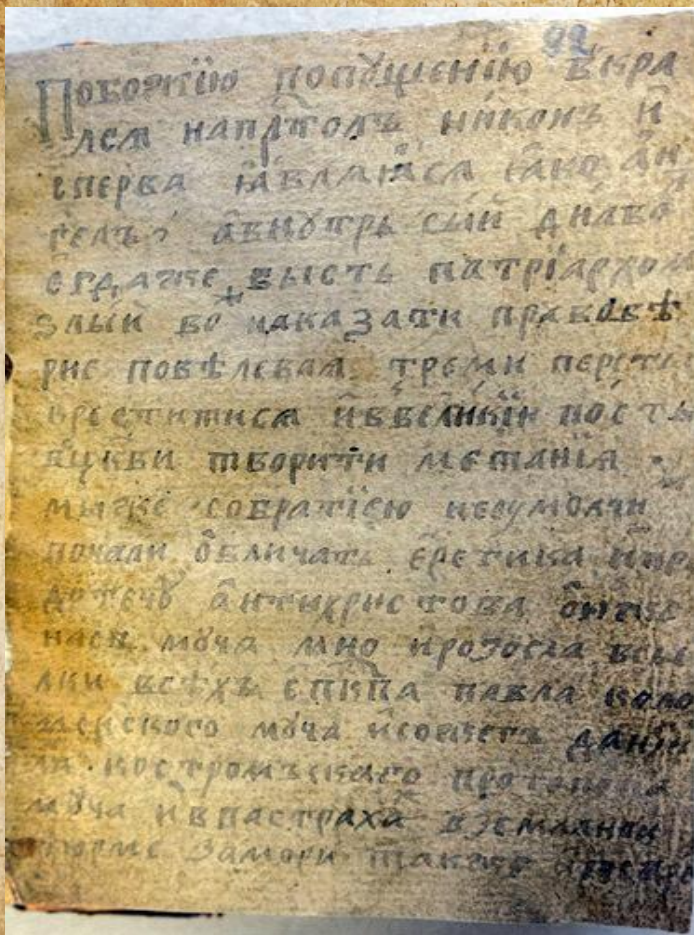 92
Поборитїю попꙋщенїю вкра
лсѧ напрⷭ҇толъ никонъ и҆
сперва ꙗ҆влѧꙗсѧ ꙗ҆ко а҆н
гелъ, а҆внꙋтрь сый дїѧво
є҆гдаже бысть патрїархом
злый бо наказати правовѣ
рне повѣлевая треми персты
креститися и҆ввеликїи постъ
вцр҃кви творити метанїя
мыже собратїею неꙋмолчи
почали ѡ҆бличать є҆ретика пре
дотечꙋ а҆нтихристова ѻ҆нже
насъ мꙋча мно иразосла всы
лки всѣхъ є҆пк҃па павла коло
менского мꙋча исожегъ данїи
ла костромъскаго протопопа
мꙋча ивпастраха вземляной
тюрме замори такоже